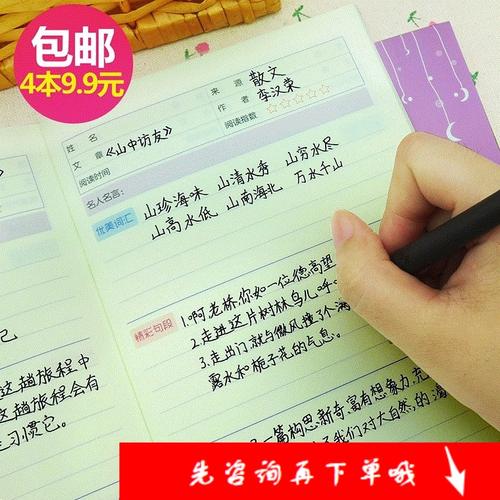 包邮
4本9.9元
来 源 散文
作 者 李汉荣
阅读指数 ☆☆☆☆☆
姓 名
文 章 《山中访友》
阅读时间
名人名言:
优美词汇 山珍海味 山清水秀 山穷水尽
山高水低 山南海北 万水千山
精彩句段 1.啊老桥,你如一位德高望
2.走进这片树林鸟儿呼
3.走出门就与微风撞了个满
露水和栀子花的气息。
这趟旅程中
这趟旅程会有
习惯它。
一篇构思新奇,富有想象力,充
我们对大自然的
先咨询再下单哦